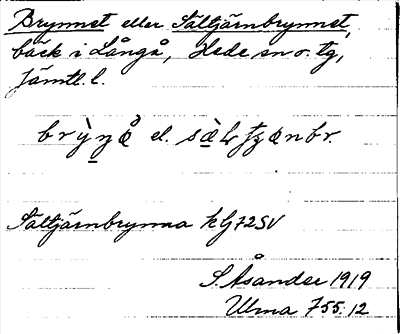 Brynnet eller Sältjärnbrynnet,
bäck i Långå, Hede sn o. tg,
Jämtl. l.
el.
Sältjärnbrynna kG72SV
S. Åsander 1919
Ulma 755:12